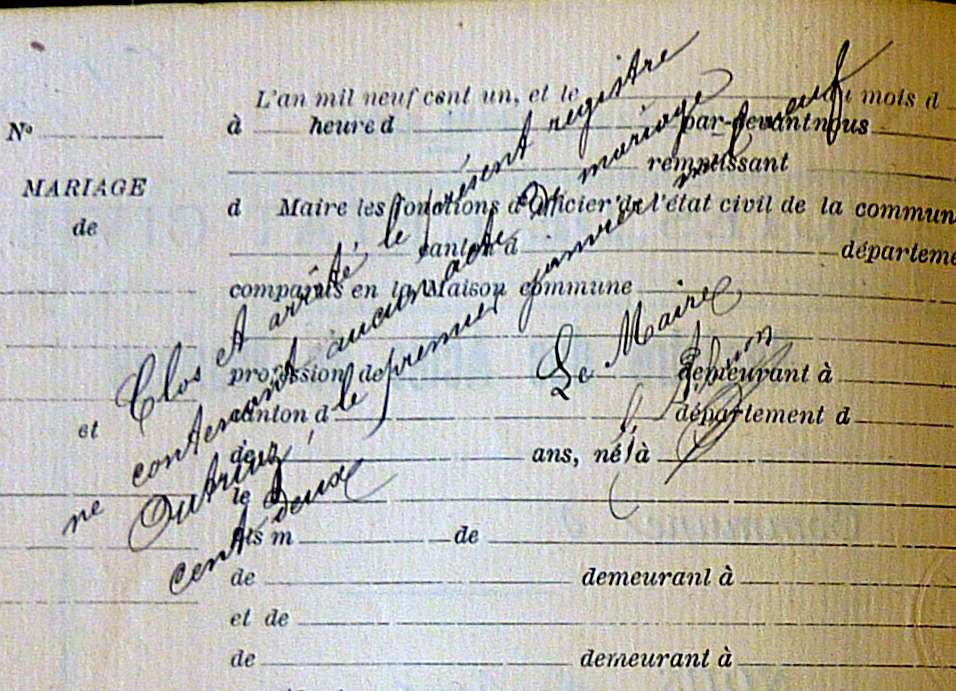 L'an mil neuf cent un, et le mois d
N° à heure d par-devant nous
remplissant
MARIAGE
d Maire les fonctions d'Officier de l'état civil de la commun
de
canton d départeme
comparus en la Maison commune
profession de demeurant à
canton d département d
et
de ans, né à
le
fils m de
de demeurant à
et de
de demeurant à
Clos et arrêté le présent registre
ne contenant aucun acte de mariage
Outriaz, le premier janvier mil neuf
cent deux
Le Maire